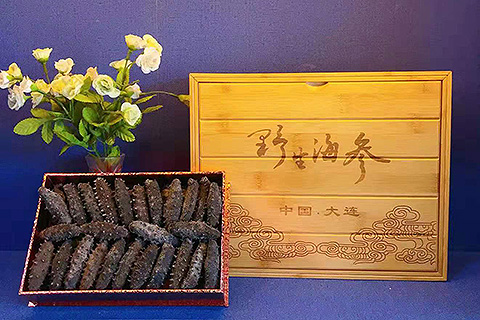 野生海参
中国.大连